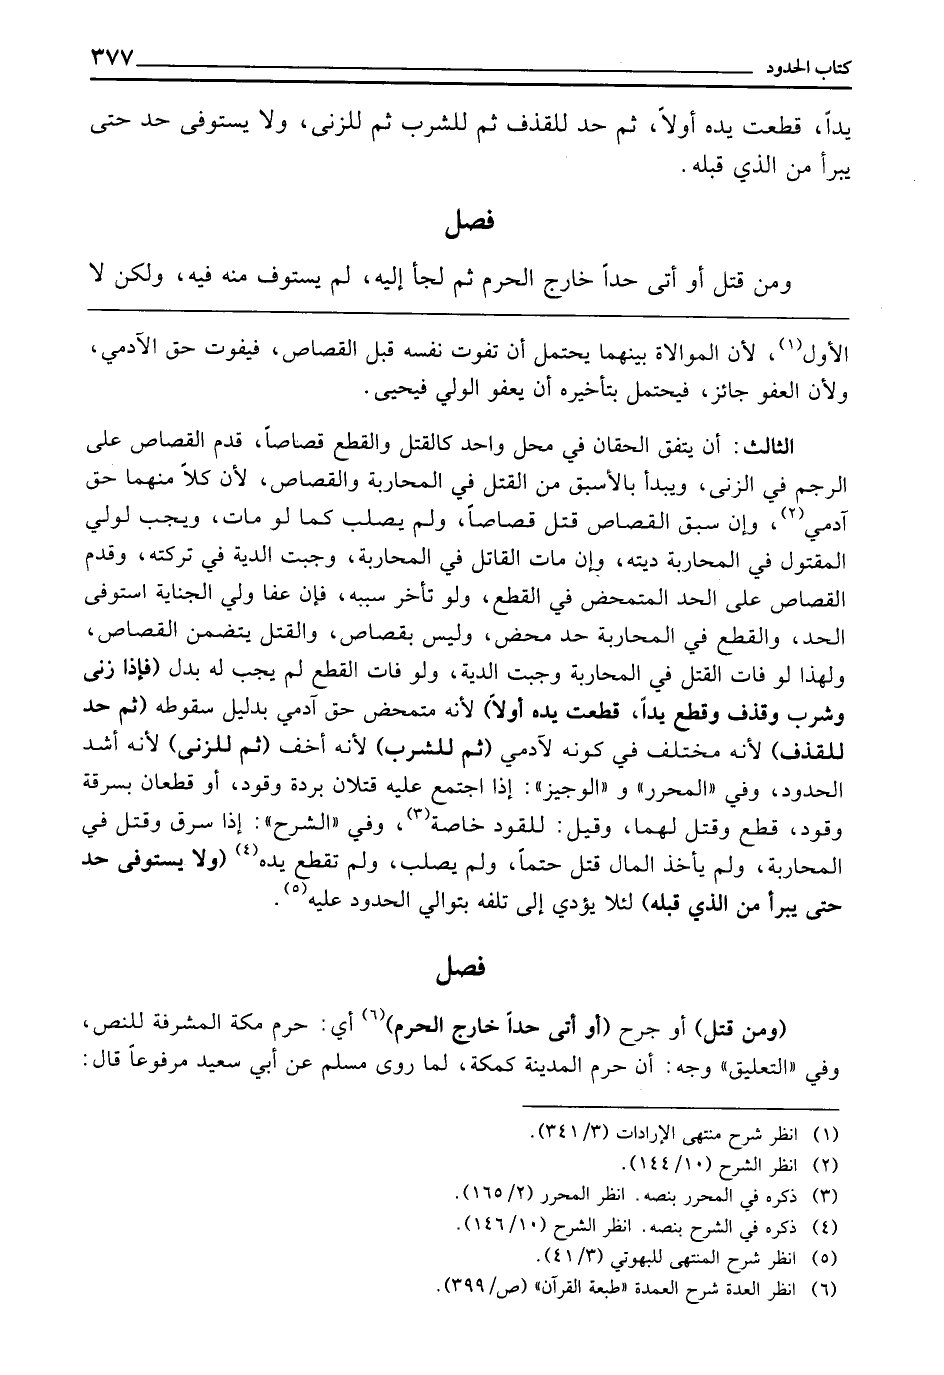 كتاب الحدود ٣٧٧
يداً، قطعت يده أولاً، ثم حد للقذف ثم للشرب ثم للزنى، ولا يستوفى حد حتى
يبرأ من الذي قبله.
فصل
ومن قتل أو أتى حداً خارج الحرم ثم لجأ إليه، لم يستوف منه فيه، ولكن لا
الأول(١)، لأن الموالاة بينهما يحتمل أن تفوت نفسه قبل القصاص، فيفوت حق الآدمي،
ولأن العفو جائز، فيحتمل بتأخيره أن يعفو الولي فيحيى.
الثالث: أن يتفق الحقان في محل واحد كالقتل والقطع قصاصاً، قدم القصاص على
الرجم في الزنى، ويبدأ بالأسبق من القتل في المحاربة والقصاص، لأن كلاً منهما حق
آدمي(٢)، وإن سبق القصاص قتل قصاصاً، ولم يصلب كما لو مات، ويجب لولي
المقتول في المحاربة ديته، وإن مات القاتل في المحاربة، وجبت الدية في تركته، وقدم
القصاص على الحد المتمحض في القطع، ولو تأخر سببه، فإن عفا ولي الجناية استوفى
الحد، والقطع في المحاربة حد محض، وليس بقصاص، والقتل يتضمن القصاص،
ولهذا لو فات القتل في المحاربة وجبت الدية، ولو فات القطع لم يجب له بدل (فإذا زنى
وشرب وقذف وقطع يداً، قطعت يده أولاً) لأنه متمحض حق آدمي بدليل سقوطه (ثم حد
للقذف) لأنه مختلف في كونه لآدمي (ثم للشرب) لأنه أخف (ثم للزنى) لأنه أشد
الحدود، وفي «المحرر» و «الوجيز»: إذا اجتمع عليه قتلان بردة وقود، أو قطعان بسرقة
وقود، قطع وقتل لهما، وقيل: للقود خاصة(٣)، وفي «الشرح»: إذا سرق وقتل في
المحاربة، ولم يأخذ المال قتل حتماً، ولم يصلب، ولم تقطع يده(٤) (ولا يستوفى حد
حتى يبرأ من الذي قبله) لئلا يؤدي إلى تلفه بتوالي الحدود عليه(٥).
فصل
(ومن قتل) أو جرح (أو أتى حداً خارج الحرم)(٦) أي: حرم مكة المشرفة للنص،
وفي «التعليق» وجه: أن حرم المدينة كمكة، لما روى مسلم عن أبي سعيد مرفوعاً قال:
(١) انظر شرح منتهى الإرادات (٣/ ٣٤١).
(٢) انظر الشرح (١٠/ ١٤٤).
(٣) ذكره في المحرر بنصه. انظر المحرر (٢/ ١٦٥).
(٤) ذكره في الشرح بنصه. انظر الشرح (١٠/ ١٤٦).
(٥) انظر شرح المنتهى للبهوتي (٣/ ٤١).
(٦) انظر العدة شرح العمدة «طبعة القرآن» (ص/ ٣٩٩).